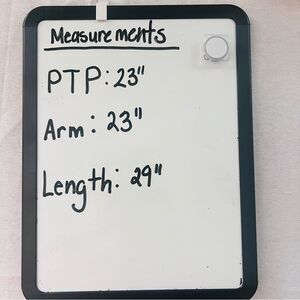 Measurements
PTP: 23"
Arm: 23"
Length: 29"